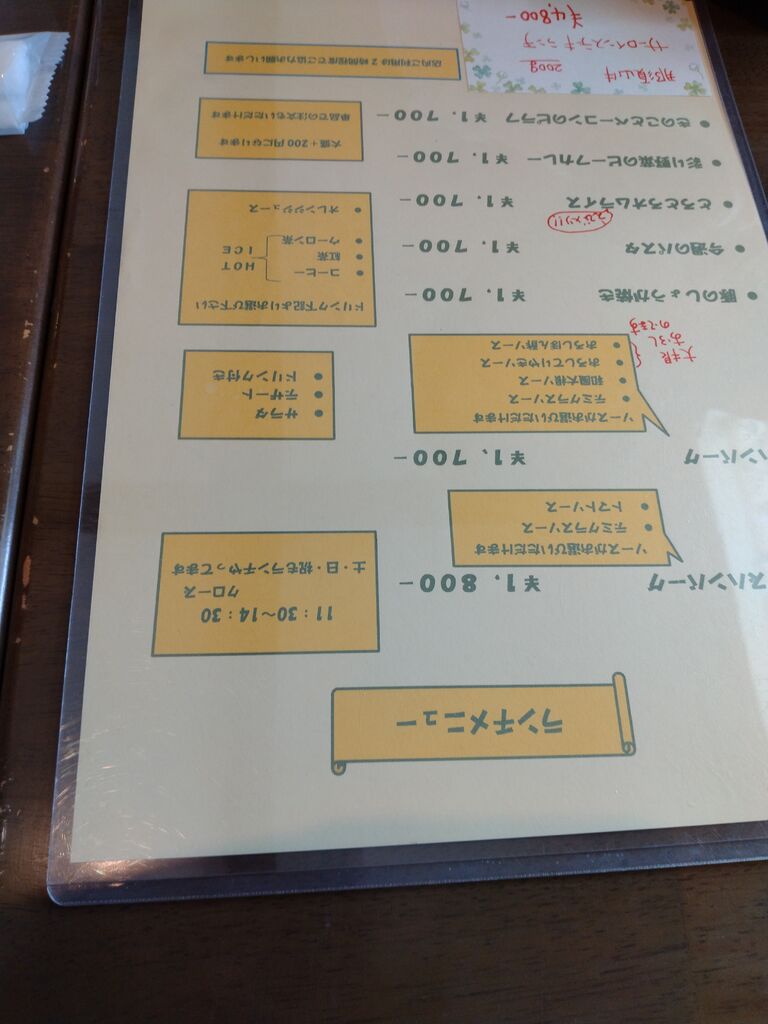 ランチメニュー
11：30～14：30
クローズ
土・日・祝もランチやってます
スハンバーグ ￥1，800－
ソースがお選びいただけます
● デミグラスソース
● トマトソース
ハンバーグ ￥1，700－
ソースがお選びいただけます
● デミグラスソース
● 和風大根ソース
● おろしてりやきソース
● おろしぽん酢ソース
大根
おろし
のってます
● サラダ
● デザート
● ドリンク付き
● 豚のしょうが焼き ￥1，700－
● 今週のパスタ ￥1，700－
● とろとろオムライス ￥1，700－
● 彩り野菜のビーフカレー ￥1，700－
● きのことベーコンのピラフ ￥1，700－
ドリンク下記よりお選び下さい
● コーヒー
● 紅茶
● ウーロン茶
HOT
ICE
● オレンジジュース
大盛＋200円になります
単品での注文もいただけます
店内ご利用は2時間程度でご協力お願いします
那須山牛
200g
サーロインステーキランチ
￥4,800－